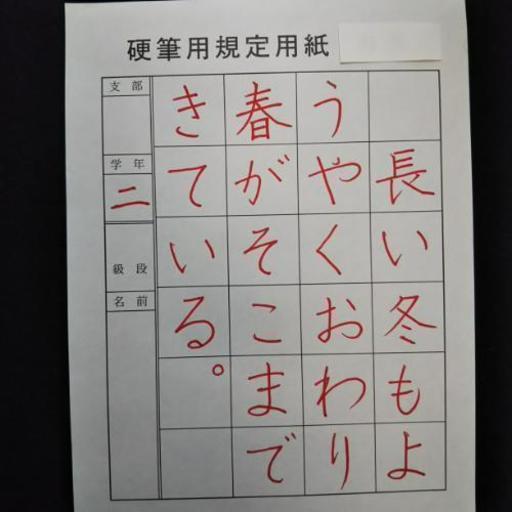 硬筆用規定用紙
長い冬もよ
うやくおわり
春がそこまで
きている。
支部
学年
二
級段
名前